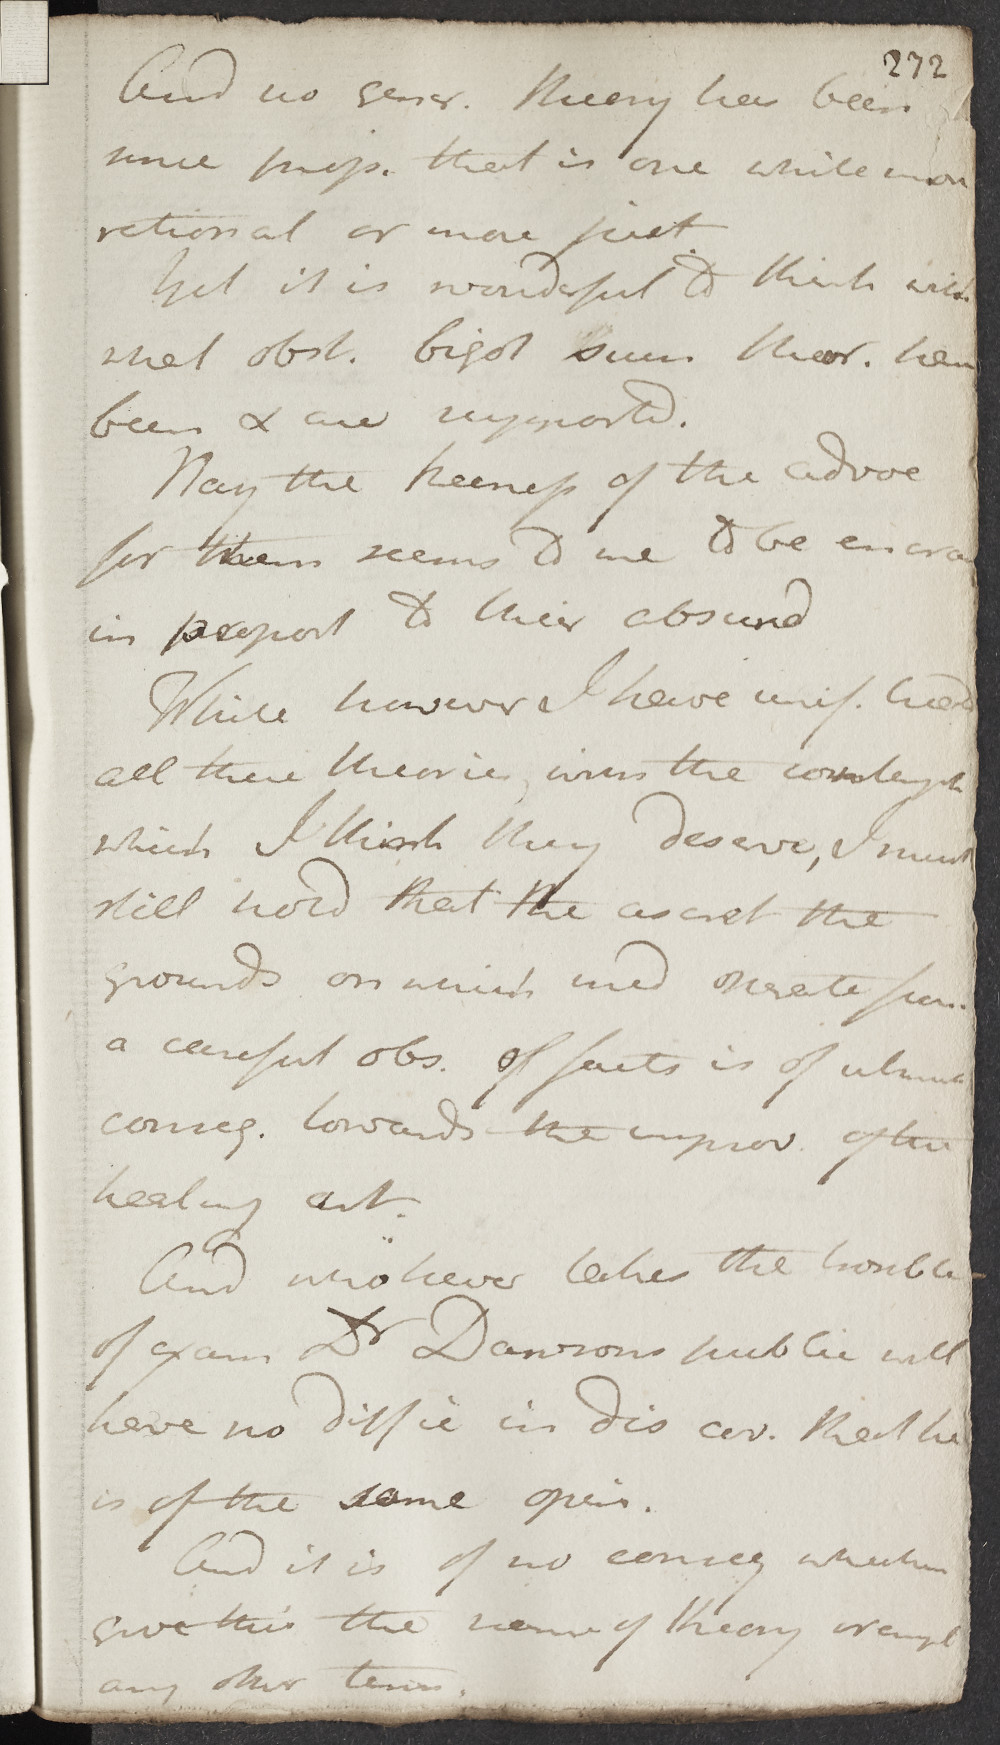 272
And no gener. theory has been
since prop. that is one while more
rational or more just
Yet it is wonderful to think with
what obst. bigot such theor. have
been & are support'd.
Nay the keenness of the advoc
for them seems to me to be encrea
in proport to their absurd
While however I have unif. treated
all these theories, with the contempt
which I think they deserve, I must
still hold that the ascert the
grounds on which med operate from
a careful obs. of facts is of utmost
conseq. towards the improv. of the
healing art.
And whohever takes the trouble
of exam Dr Dawsons public will
have no diffic in discov. that he
is of the same opin.
And it is of no conseq whether
give this the name of theory or empl
any other term.